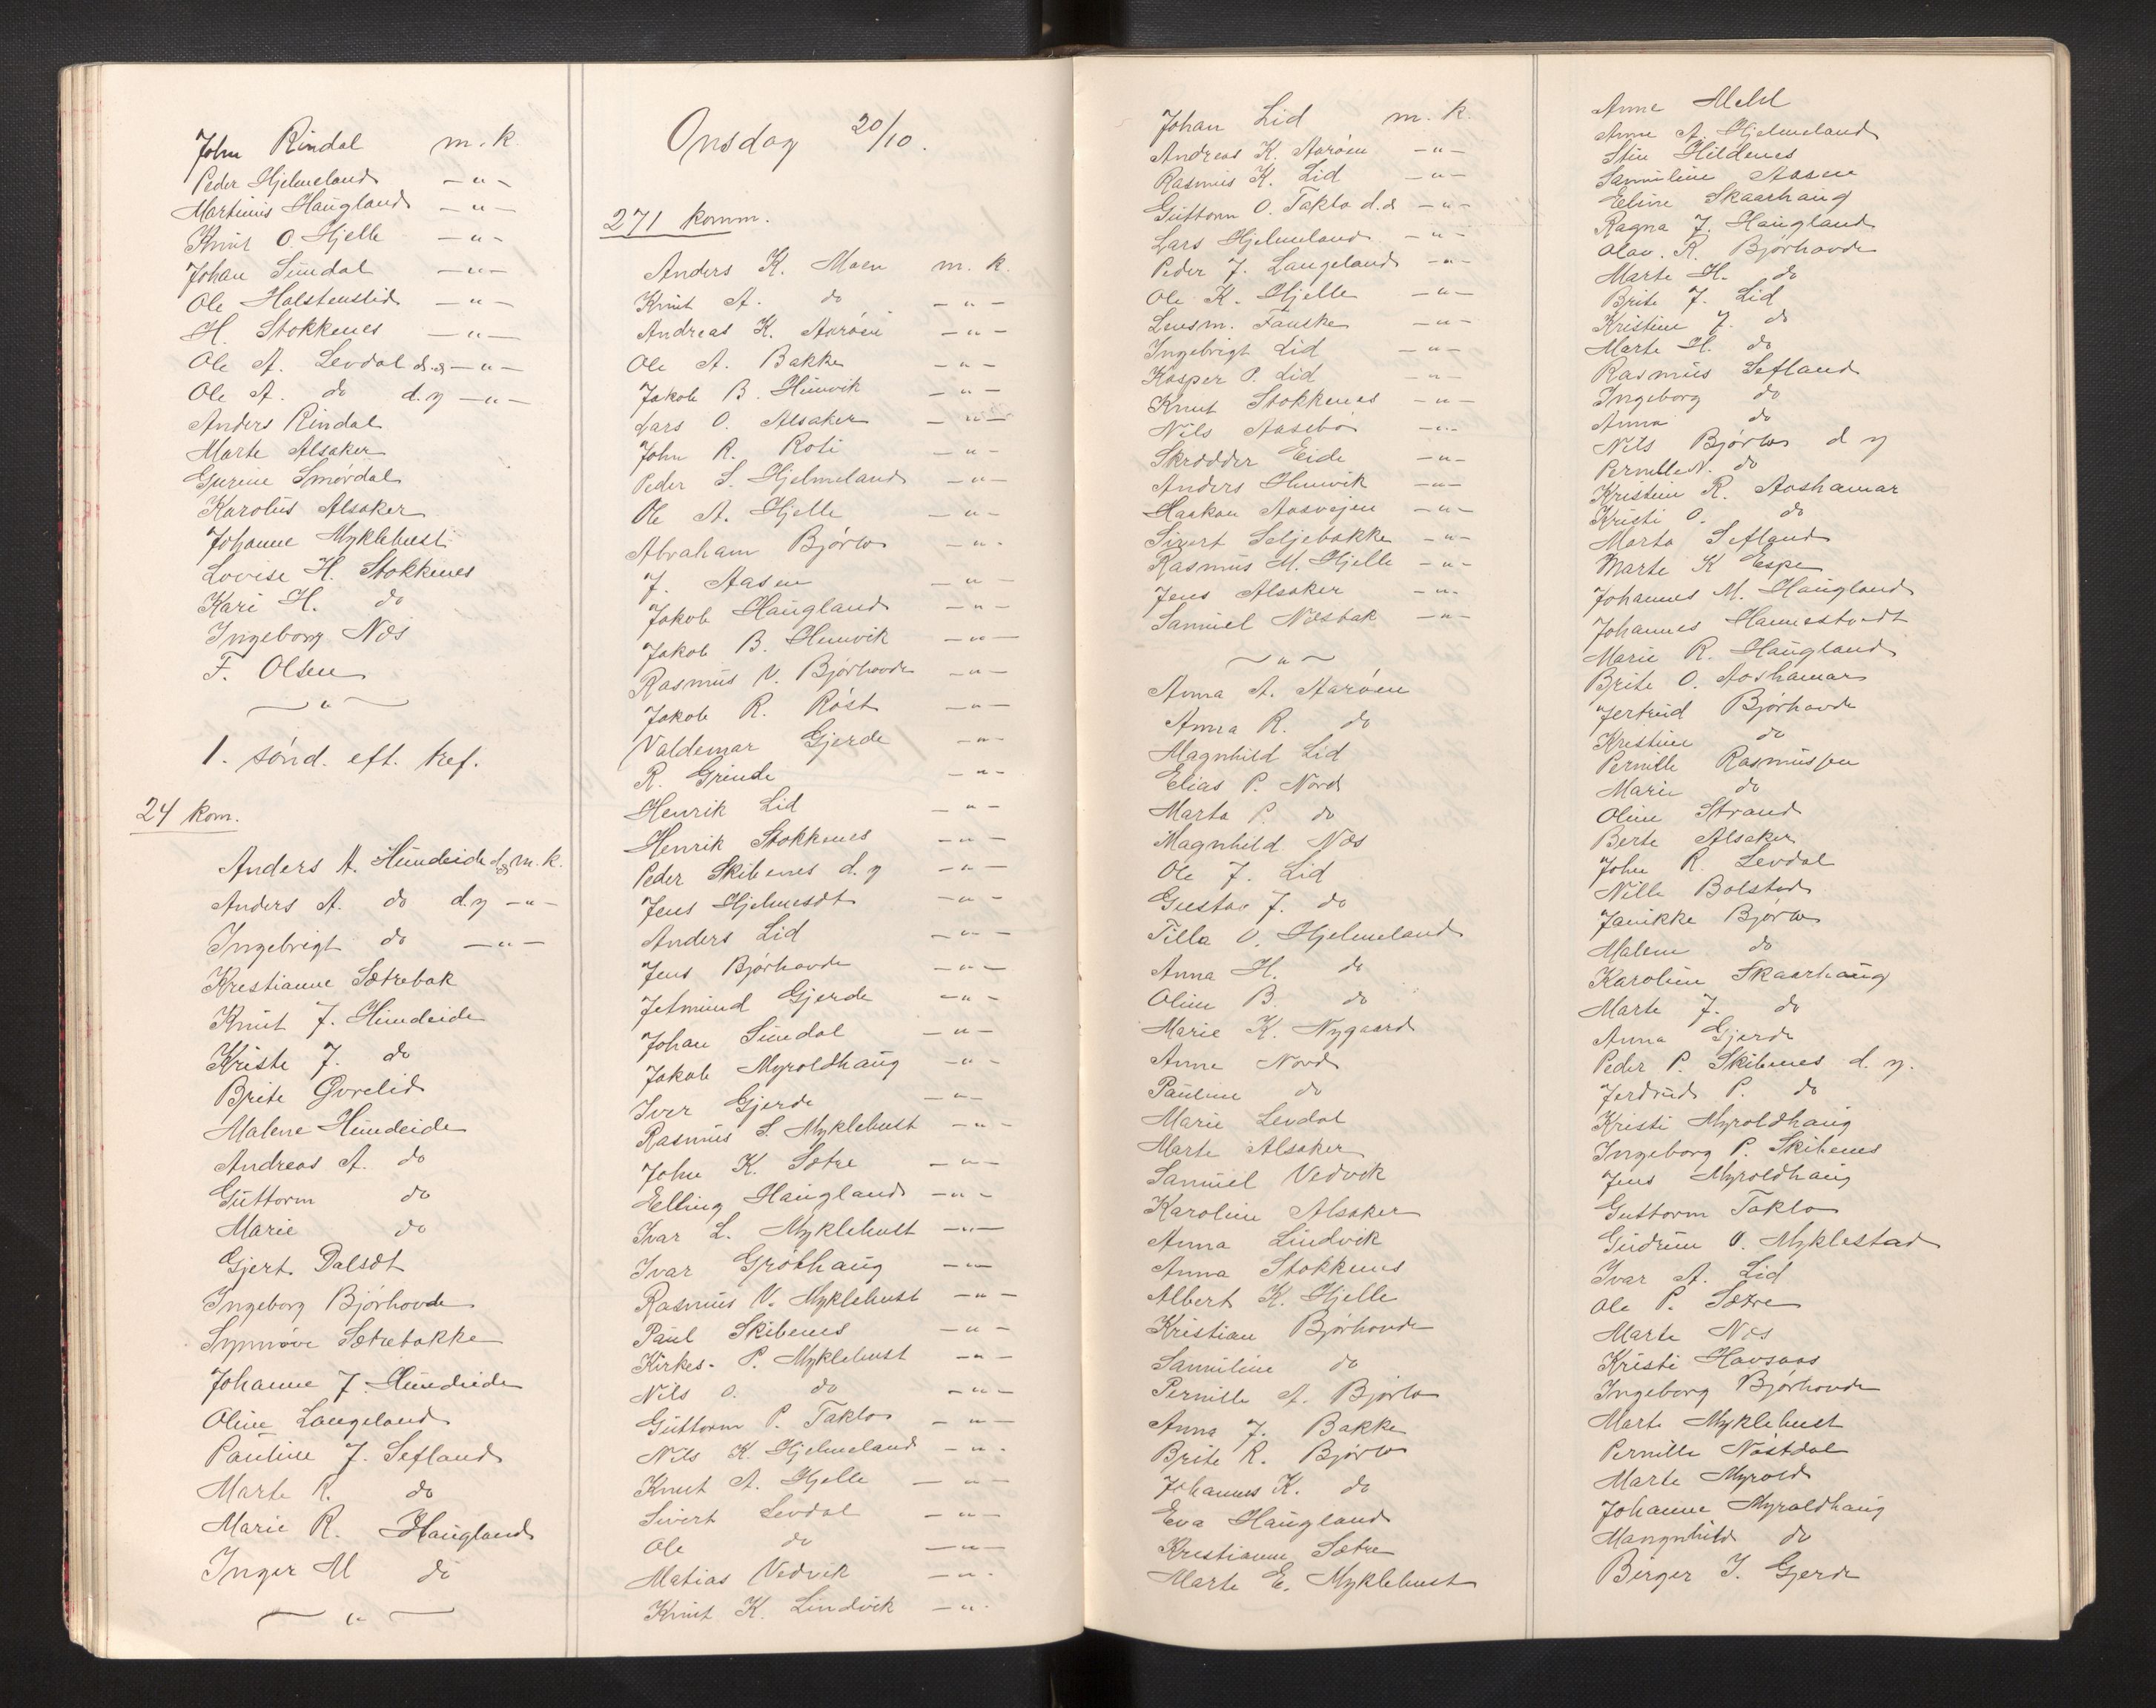 John Rindal m. k.
Peder Hjelmeland — " —
Martinus Haugland — " —
Knut O. Hjelle — " —
Johan Sundal — " —
Ole Holstenslid — " —
H. Stokkenes — " —
Ole A. Levdal d.æ — " —
Ole A. do d.y — " —
Anders Rindal
Marte Alsaker
Gurine Smørdal
Karolus Alsaker
Johanne Myklebust
Lovise H. Stokkenes
Kari H. do
Ingeborg Næs
F. Olsen
— " —
1. sønd. eft. tref.
24 kom.
Anders A. Hundeide d.æ m. k.
Anders A. do d.y — " —
Ingebrigt do — " —
Kristianne Sætrebak
Knut J. Hundeide
Kriste J. do
Brite Øvrelid
Malene Hundeide
Andreas A. do
Guttorm do
Marie do
Gjert Dalsdt
Ingeborg Bjørhovde
Synnøve Sætrebakke
Johanne J. Hundeide
Oline Langeland
Pauline J. Sefland
Marte R. do
Marie R. Haugland
Inger M do
— " —
Onsdag 20/10.
271 komm.
Anders K. Moen m. k.
Knut A. do — " —
Andreas K. Aarøen — " —
Ole A. Bakke — " —
Jakob B. Humvik — " —
Lars O. Alsaker — " —
John R. Roti — " —
Peder S. Hjelmeland — " —
Ole A. Hjelle — " —
Abraham Bjørlo — " —
J. Aasen — " —
Jakob Haugland — " —
Jakob B. Humvik — " —
Rasmus V. Bjørhovde — " —
Jakob R. Røst — " —
Valdemar Gjerde — " —
R. Grinde — " —
Henrik Lid — " —
Henrik Stokkenes — " —
Peder Skibenes d. y — " —
Jens Hjelmesdt — " —
Anders Lid — " —
Jens Bjørhovde — " —
Jetmund Gjerde — " —
Johan Sundal — " —
Jakob Myroldhaug — " —
Iver Gjerde — " —
Rasmus S. Myklebust — " —
John K. Sætre — " —
Elling Haugland — " —
Ivar L. Myklebust — " —
Ivar Grøthaug — " —
Rasmus V. Myklebust — " —
Paul Skibenes — " —
Kirkes. P. Myklebust — " —
Nils O. do — " —
Guttorm P. Taklo — " —
Nils K. Hjelmeland — " —
Knut A. Hjelle — " —
Sivert Levdal — " —
Ole do — " —
Matias Vedvik — " —
Knut K. Lindvik — " —
Johan Lid m. k.
Andreas K. Aarøen — " —
Rasmus K. Lid — " —
Guttorm O. Taklo d.æ — " —
Lars Hjelmeland — " —
Peder J. Langeland — " —
Ole K. Hjelle — " —
Lensm. Fauske — " —
Ingebrigt Lid — " —
Kasper P. Lid — " —
Knut Stokkenes — " —
Nils Aasebø — " —
Skrædder Eide — " —
Anders Humvik — " —
Haakon Aasvejen — " —
Sivert Seljebakke — " —
Rasmus M. Hjelle — " —
Jens Alsaker — " —
Samuel Næsbak — " —
— " —
Anna A. Aarøen
Anna R. do
Magnhild Lid
Elias P. Nord
Marta P. do
Magnhild Næs
Ole J. Lid
Gustav J. do
Tilla O. Hjelmeland
Anna H. do
Oline B. do
Marie K. Nygaard
Anne Nord
Pauline do
Marie Levdal
Marte Alsaker
Samuel Vedvik
Karoline Alsaker
Anna Lindvik
Anna Stokkenes
Albert K. Hjelle
Kristian Bjørhovde
Samuline do
Pernille A. Bjørlo
Anna J. Bakke
Brite R. Bjørlo
Johannes K. do
Eva Haugland
Kristianne Sætre
Marte E. Myklebust
Anne Melil
Anne A. Hjelmeland
Stin Hildenes
Samuline Aasen
Eline Skaarhaug
Ragna J. Haugland
Olav. R. Bjørhovde
Marte H. do
Brite J. Lid
Kristine J. do
Marte H. do
Rasmus Sefland
Ingeborg do
Anna do
Nils Bjørlo d y
Pernille N. do
Kristine R. Aashamar
Kristi O. do
Marta Sefland
Marte K Espe
Johannes M. Haugland
Johannes Hannestvedt
Marie R. Haugland
Brite O. Aashamar
Jertrud Bjørhovde
Kristine do
Pernille Rasmussen
Marie do
Oline Strand
Berte Alsaker
John R. Levdal
Nille Bolstad
Janikke Bjørlo
Malene do
Karoline Skaarhaug
Marte J. do
Anna Gjerde
Peder P. Skibenes d. y.
Jerdrud P. do
Kristi Myroldhaug
Ingeborg P. Skibenes
Jens Myroldhaug
Guttorm Taklo
Gudrun O. Myklestad
Ivar A. Lid
Ole P. Sætre
Marte Næs
Kristi Havsaas
Ingeborg Bjørhovde
Marte Myklebust
Pernille Nøstdal
Marte Myrold
Johanne Myroldhaug
Mangnhild do
Birger I. Gjerde